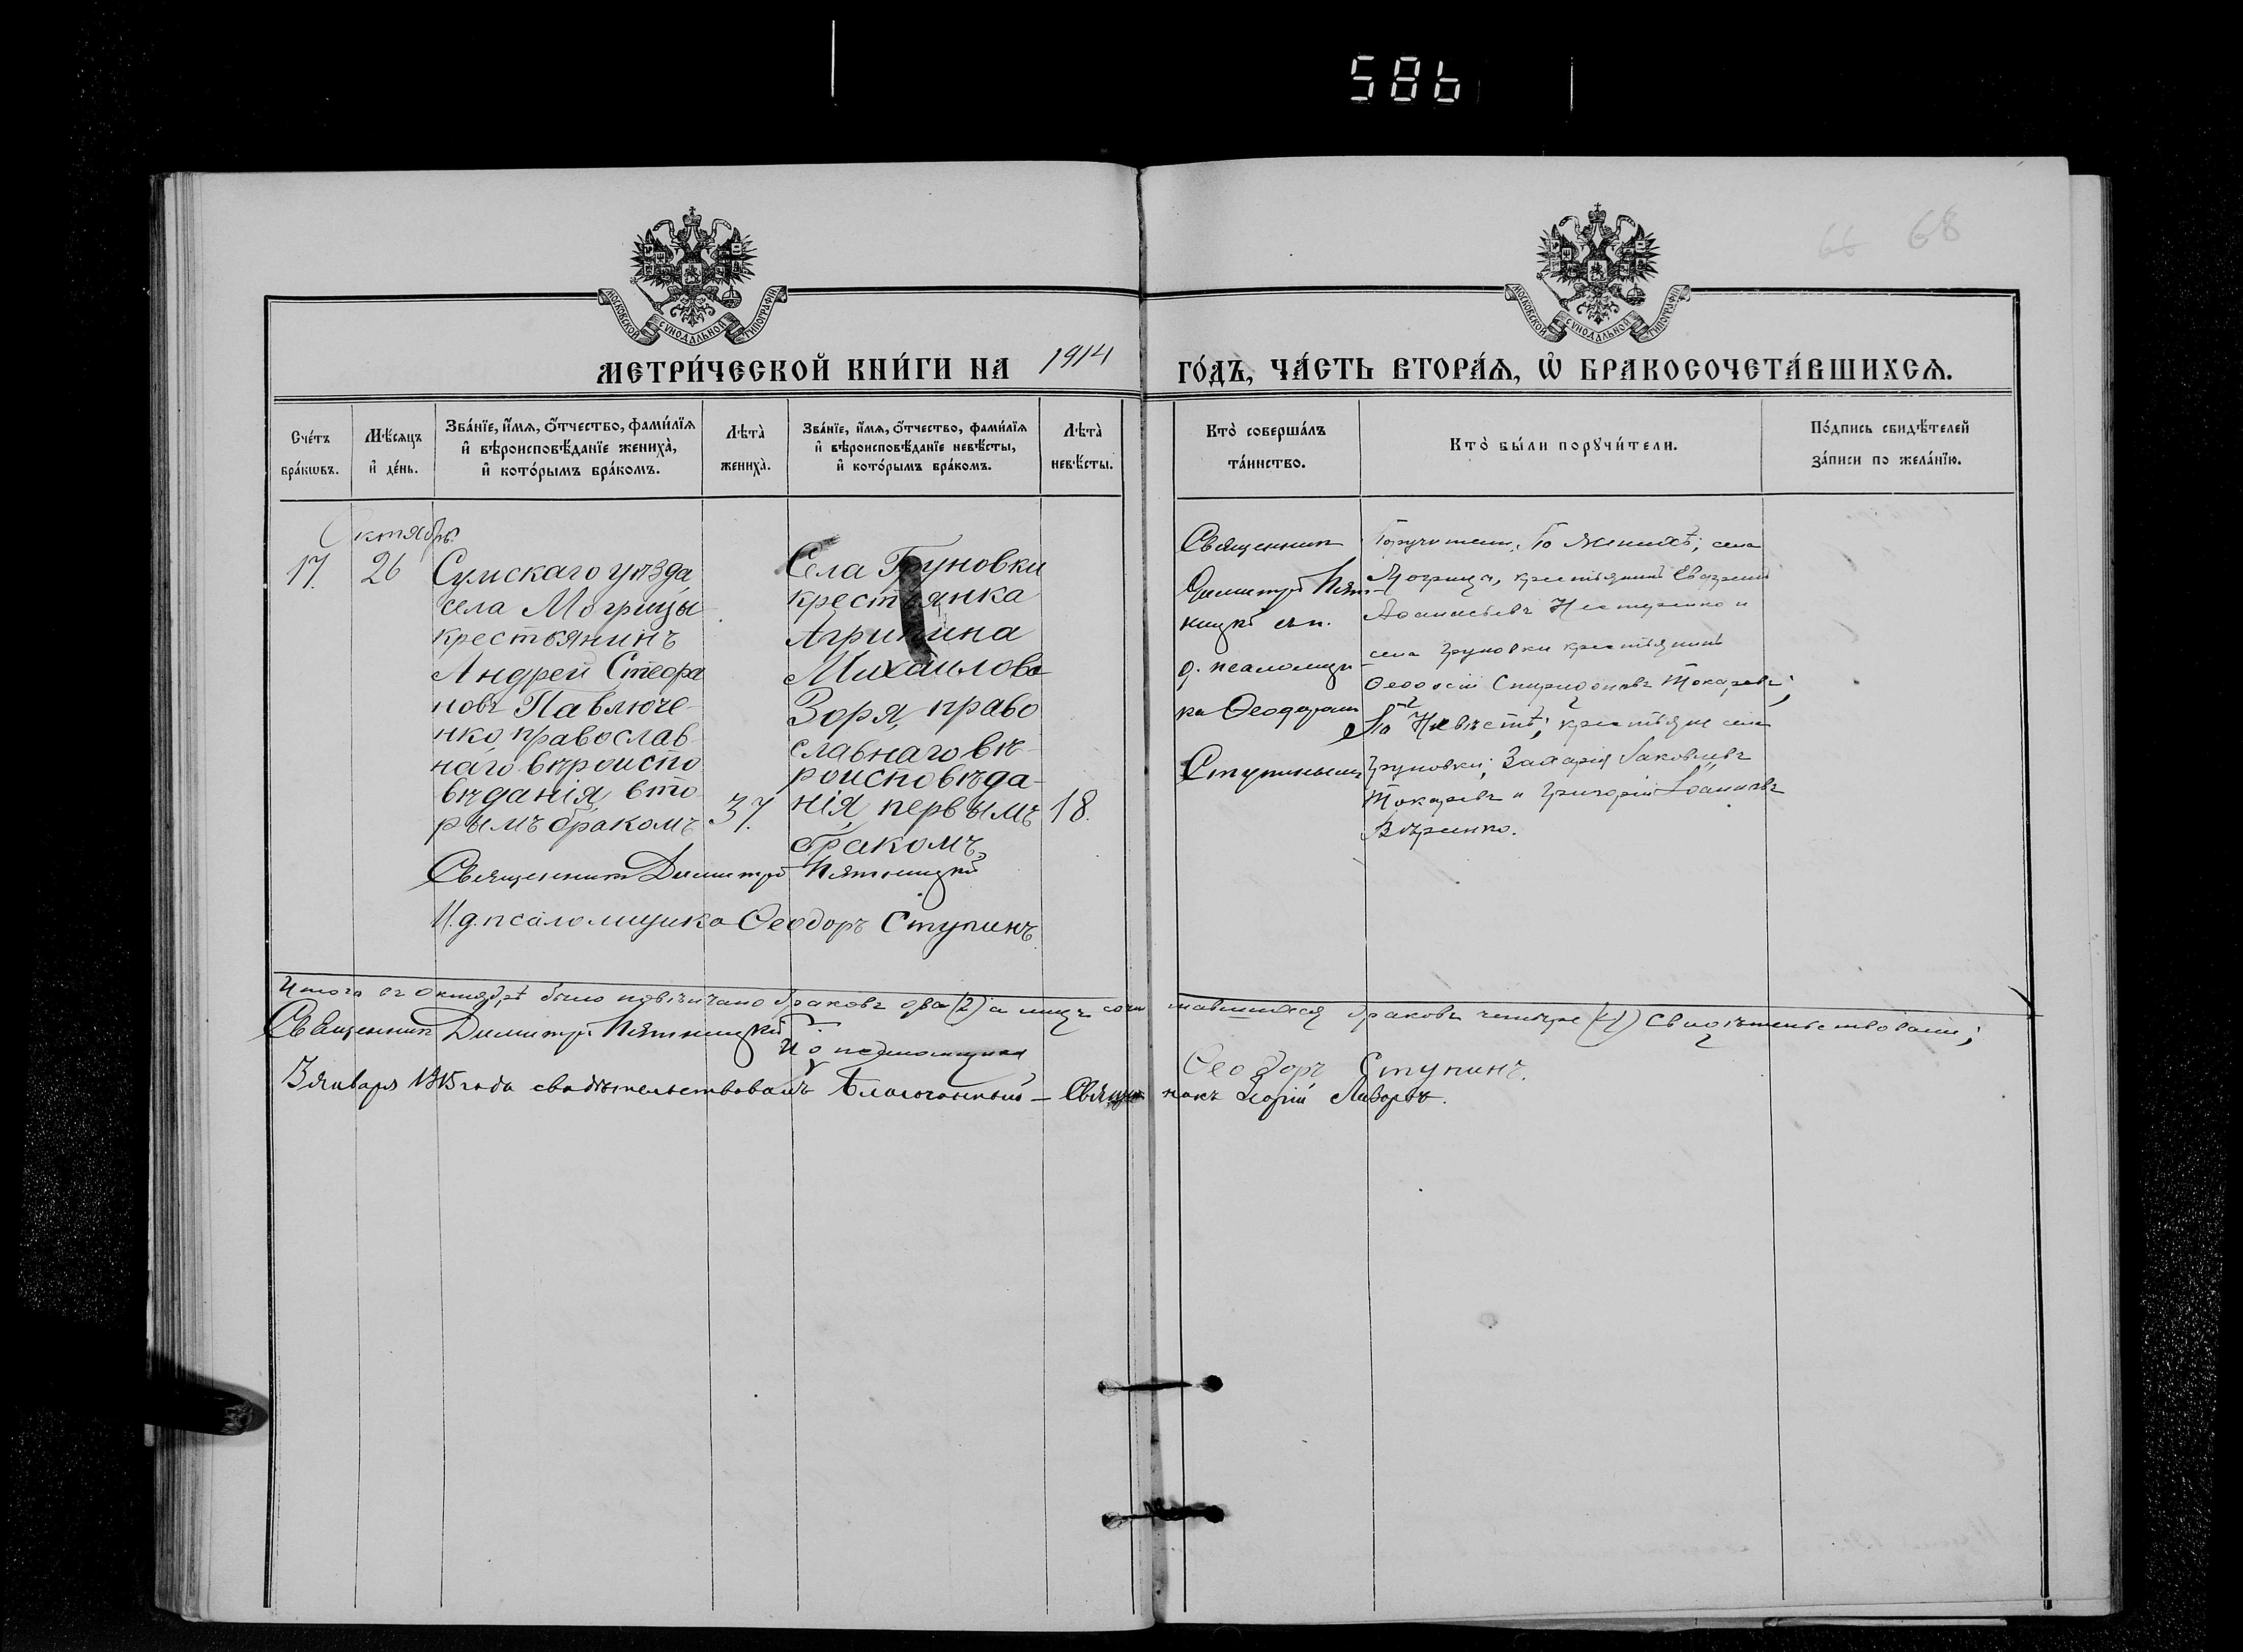 586
66 68
МОСКОВСКОЙ СѴНОДАЛЬНОЙ ТИПОГРАФІИ
МОСКОВСКОЙ СѴНОДАЛЬНОЙ ТИПОГРАФІИ
МЕТРИ́ЧЕСКОЙ КНИ́ГИ НА 1914 ГО́ДЪ, ЧА́СТЬ ВТОРА́Ѧ, Ѽ БРАКОСОЧЕТА́ВШИХСѦ.
Сче́тъ
бра́кѡвъ.
Мѣ́сяцъ
и де́нь.
Зва́нїе, и́мѧ, о́тчество, фами́лїѧ
и вѣроисповѣ́данїе жениха̀,
и кото́рымъ бра́комъ.
Лѣта̀
жениха̀.
Зва́нїе, и́мѧ, о́тчество, фами́лїѧ
и вѣроисповѣ́данїе невѣ́сты,
и кото́рымъ бра́комъ.
Лѣта̀
невѣ́сты.
Кто̀ соверша́лъ
та́инство.
Кто̀ бы́ли порꙋчи́тели.
По́дпись свидѣ́телей
за́писи по жела́нїю.
Октябрь
17. 26
Сумскаго уѣзда
села Могрицы
крестьянинъ
Андрей Стефа
новъ Павлюче-
нко православ-
наго вѣроиспо
вѣданія, вто-
рымъ бракомъ
37.
Села Груновки
крестьянка
Агрипина
Михаилова
Зоря, право
славнаго вѣ-
роисповѣда-
нія, первымъ
бракомъ,
18.
Священник
Димитрій Пят-
ницкій съ и.
д. псаломщи-
ка Ѳеодоромъ
Ступинымъ
Поручители: По Женихѣ; села
Могрица, крестьянинъ
Аѳанасьевъ Нестеренко и
села Груновки крестьянинъ
Ѳеодосій Спиридоновъ Токаревъ;
По Невѣстѣ; крестьяне села
Груновки; Захарія Іаковлевъ
Токаревъ и Григорій Іоанновъ
Священникъ Димитрій Пятницкій
И.д. псаломщика Ѳеодоръ Ступинъ.
Итого въ октябрѣ было повѣнчано браковъ два (2) а лицъ соче тавшихся браковъ четыре (4) Свидѣтельствовали;
Священник Димитрій Пятницкій
И д псаломщика Ѳеодоръ Ступинъ.
3 января 1915 года свидѣтельствовалъ Благочинный – Священ никъ